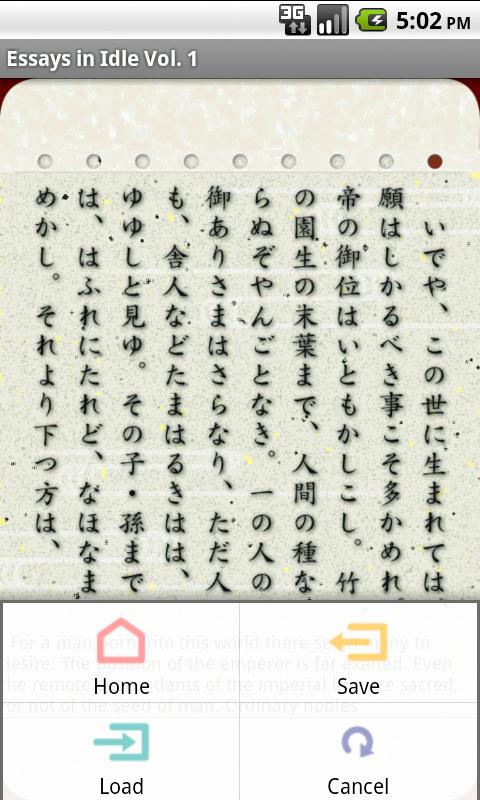 3G
5:02 PM
Essays in Idle Vol. 1
いでや、この世に生まれては
願はしかるべき事こそ多かめれ。
帝の御位はいともかしこし。竹
の園生の末葉まで、人間の種な
らぬぞやんごとなき。一の人の
御ありさまはさらなり、ただ人
も、舎人などたまはるきはは、
ゆゆしと見ゆ。その子・孫まで
は、はふれにたれど、なほなま
めかし。それより下つ方は、
For a man born into this world there to
desire. The position of the emperor is far exalted. Even
the remote descendants of the imperial are sacred,
for not of the seed of man. Ordinary nobles
Home
Save
Load
Cancel